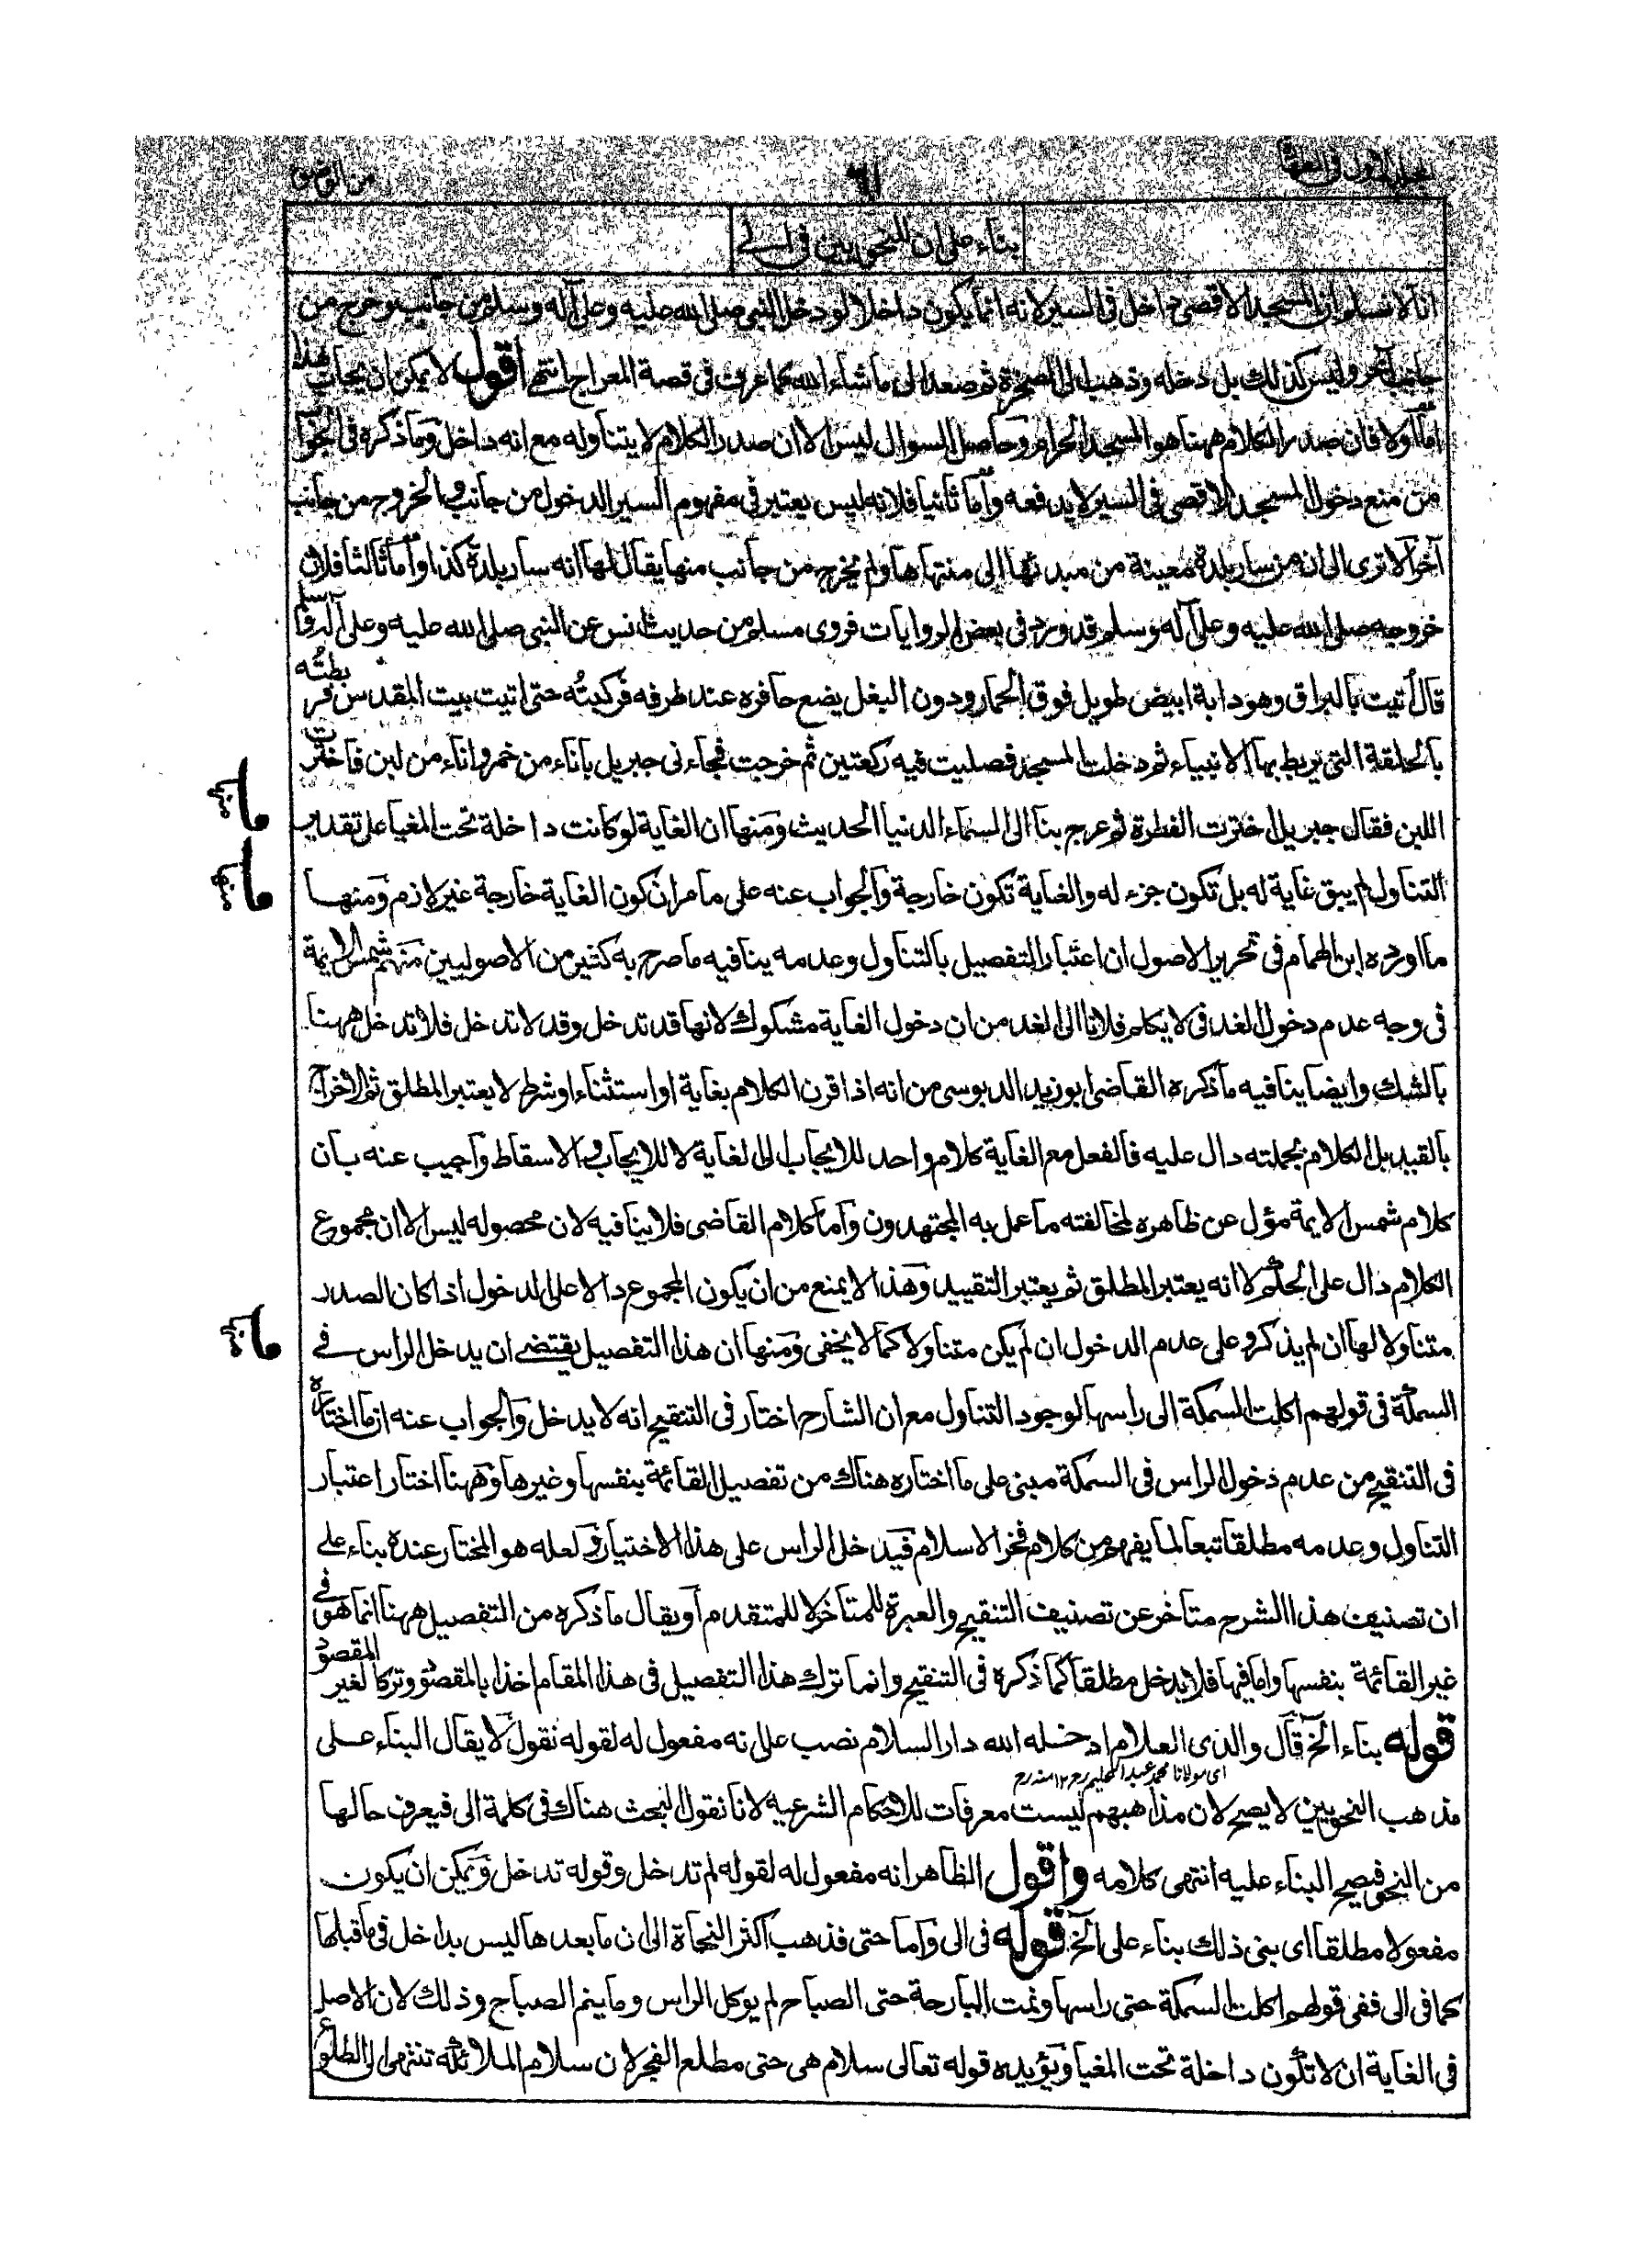 ٦١
بناء على ان للنحويين فى الى
انا لا نسلم ان المسجد الاقصى داخل فى السير لانه انما يكون داخلا لو دخل النبى صلى الله عليه وعلى آله وسلم من جانب وخرج من
جانب آخر وليس كذلك بل دخله وذهب الى الصخرة ثم صعد الى ما شاء الله كما عرفت فى قصة المعراج انتهى اقول لا يمكن ان يجاب بهذا
اما اولا فان صدر الكلام ههنا هو المسجد الحرام وحاصل السوال ليس الا ان صدر الكلام لا يتناوله مع انه داخل وما ذكره فى الجواب
من منع دخول المسجد الاقصى فى السير لا يدفعه واما ثانيا فلانه ليس يعتبر فى مفهوم السير الدخول من جانب والخروج من جانب
آخر الا ترى الى ان من سار بلدة معينة من مبدئها الى منتهاها ولم يخرج من جانب منها يقال لها انه سار بلدة كذا واما ثالثا فلان
خروجه صلى الله عليه وعلى آله وسلم قد ورد فى بعض الروايات فروى مسلم من حديث انس عن النبى صلى الله عليه وعلى آله وسلم
قال اُتيت بالبراق وهو دابة ابيض طويل فوق الحمار ودون البغل يضع حافره عند طرفه فركبتُه حتى اتيت بيت المقدس فربطتُه
بالحلقة التى يربط بها الانبياء ثم دخلت المسجد فصليت فيه ركعتين ثم خرجت فجاءنى جبريل باناء من خمر واناء من لبن فاخترت
اللبن فقال جبريل اخترت الفطرة ثم عرج بنا الى السماء الدنيا الحديث ومنها ان الغاية لو كانت داخلة تحت المغيا على تقدير
التناول لم يبق غاية له بل تكون جزء له والغاية تكون خارجة والجواب عنه على ما مر ان كون الغاية خارجة غير لازم ومنها
ما اورده ابن الهمام فى تحرير الاصول ان اعتبار التفصيل بالتناول وعدمه ينافيه ما صرح به كثير من الاصوليين منهم شمس الايمة
فى وجه عدم دخول الغد فى لا يكلم فلانا الى الغد من ان دخول الغاية مشكوك لانها قد تدخل وقد لا تدخل فلا تدخل ههنا
بالشك وايضا ينافيه ما ذكره القاضى ابو زيد الدبوسى من انه اذا قرن الكلام بغاية او استثناء او شرط لا يعتبر المطلق ثم الاخراج
بالقيد بل الكلام بجملته دال عليه فالفعل مع الغاية كلام واحد للايجاب الى الغاية لا للايجاب والاسقاط واجيب عنه بان
كلام شمس الايمة مؤل عن ظاهره لمخالفته ما عمل به المجتهدون واما كلام القاضى فلا ينافيه لان محصوله ليس الا ان مجموع
الكلام دال على الحكم لا انه يعتبر المطلق ثم يعتبر التقييد وهذا لا يمنع من ان يكون المجموع دالا على الدخول اذا كان الصدر
متناولا لها ان لم يذكر وعلى عدم الدخول ان لم يكن متناولا كما لا يخفى ومنها ان هذا التفصيل يقتضى ان يدخل الراس فى
السمكة فى قولهم اكلت السمكة الى راسها لوجود التناول مع ان الشارح اختار فى التنقيح انه لا يدخل والجواب عنه ان ما اختاره
فى التنقيح من عدم دخول الراس فى السمكة مبنى على ما اختاره هناك من تفصيل القائمة بنفسها وغيرها وههنا اختار اعتبار
التناول وعدمه مطلقا تبعا لما يفهم من كلام فخر الاسلام فيدخل الراس على هذا الاختيار ولعله هو المختار عنده بناء على
ان تصنيف هذا الشرح متاخر عن تصنيف التنقيح والعبرة للمتاخر لا للمتقدم او يقال ما ذكره من التفصيل ههنا انما هو فى
غير القائمة بنفسها واما فيها فلا يدخل مطلقا كما ذكره فى التنقيح وانما ترك هذا التفصيل فى هذا المقام اخذا بالمقصود وتركا لغير المقصود
قوله بناء الخ قال والدى العلام ادخله الله دار السلام نصب على انه مفعول له لقوله نقول لا يقال البناء على
اى مولانا محمد عبد الحليم رح ١٢ منه رح
مذهب النحويين لا يصح لان مذاهبهم ليست معرفات للاحكام الشرعية لانا نقول البحث هناك فى كلمة الى فيعرف حالها
من النحو فيصح البناء عليه انتهى كلامه واقول الظاهر انه مفعول له لقوله لم تدخل وقوله تدخل ويمكن ان يكون
مفعولا مطلقا اى بنى ذلك بناء على الخ قوله فى الى واما حتى فذهب اكثر النحاة الى ان ما بعدها ليس بداخل فى ما قبلها
كما فى الى ففى قولهم اكلت السمكة حتى راسها ونمت البارحة حتى الصباح لم يوكل الراس وما ينم الصباح وذلك لان الاصل
فى الغاية ان لا تكون داخلة تحت المغيا ويؤيده قوله تعالى سلام هى حتى مطلع الفجر لان سلام الملائكة تنتهى الى الطلوع